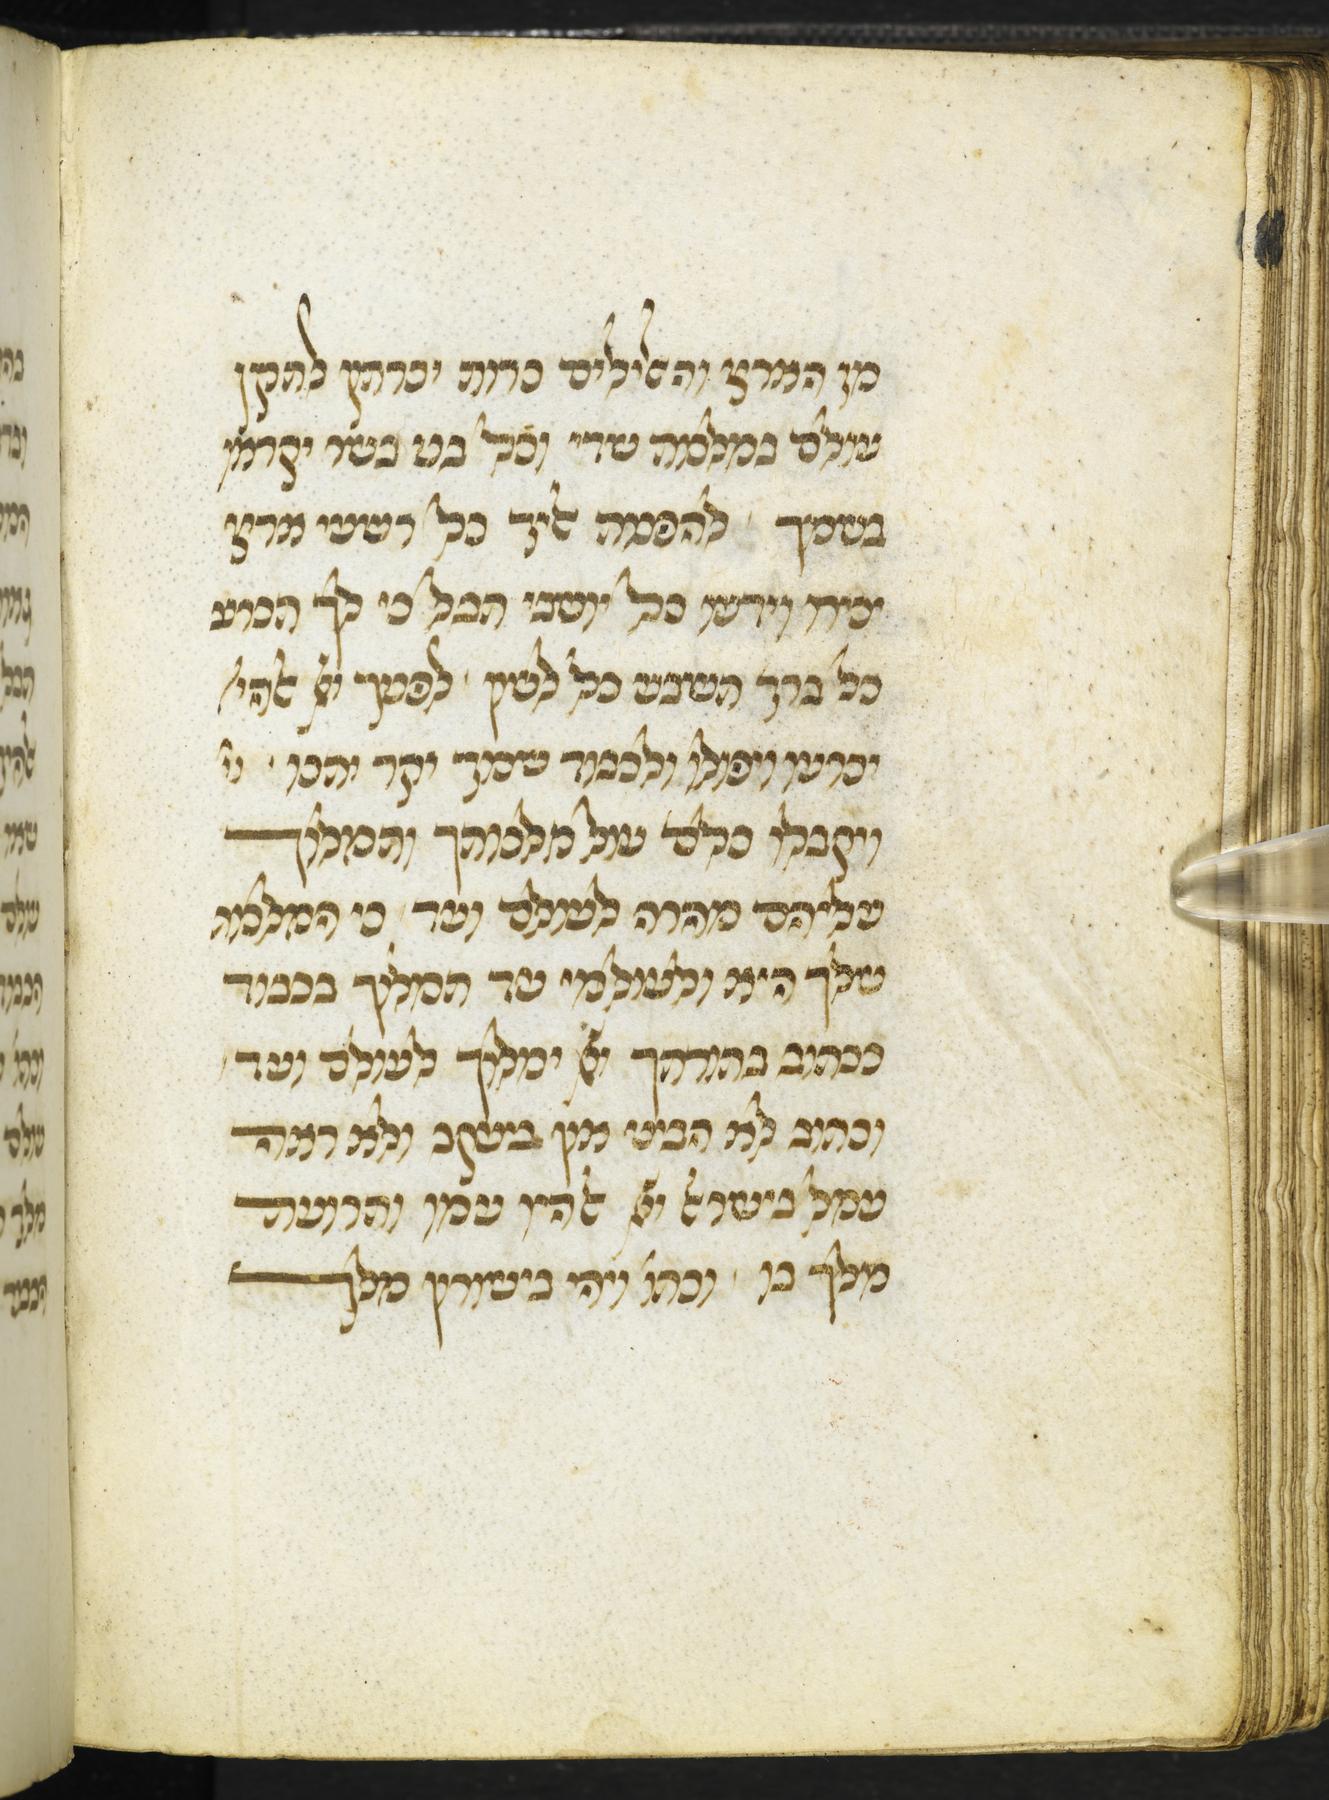 מן הארץ והאלילים כרות יכרתון לתקן
עולם במלכות שדי וכל בני בשר יקראו
בשמך להפנות אליך כל רשעי ארץ
יכירו וידעו כל יושבי תבל כי לך תכרע
כל ברך תשבע כל לשון לפניך יי אלהי׳
יכרעו ויפולו ולכבוד שמך יקר יתנו וי׳
ויקבלו כלם עול מלכותך ותמלוך
עליהם מהרה לעולם ועד כי המלכות
שלך היא ולעולמי עד תמלוך בכבוד
ככתוב בתורתך יי ימלוך לעולם ועד
וכתוב לא הביט און ביעקב ולא ראה
עמל בישראל יי אלהיו עמו ותרועת
מלך בו וכתו׳ ויהי בישורון מלך